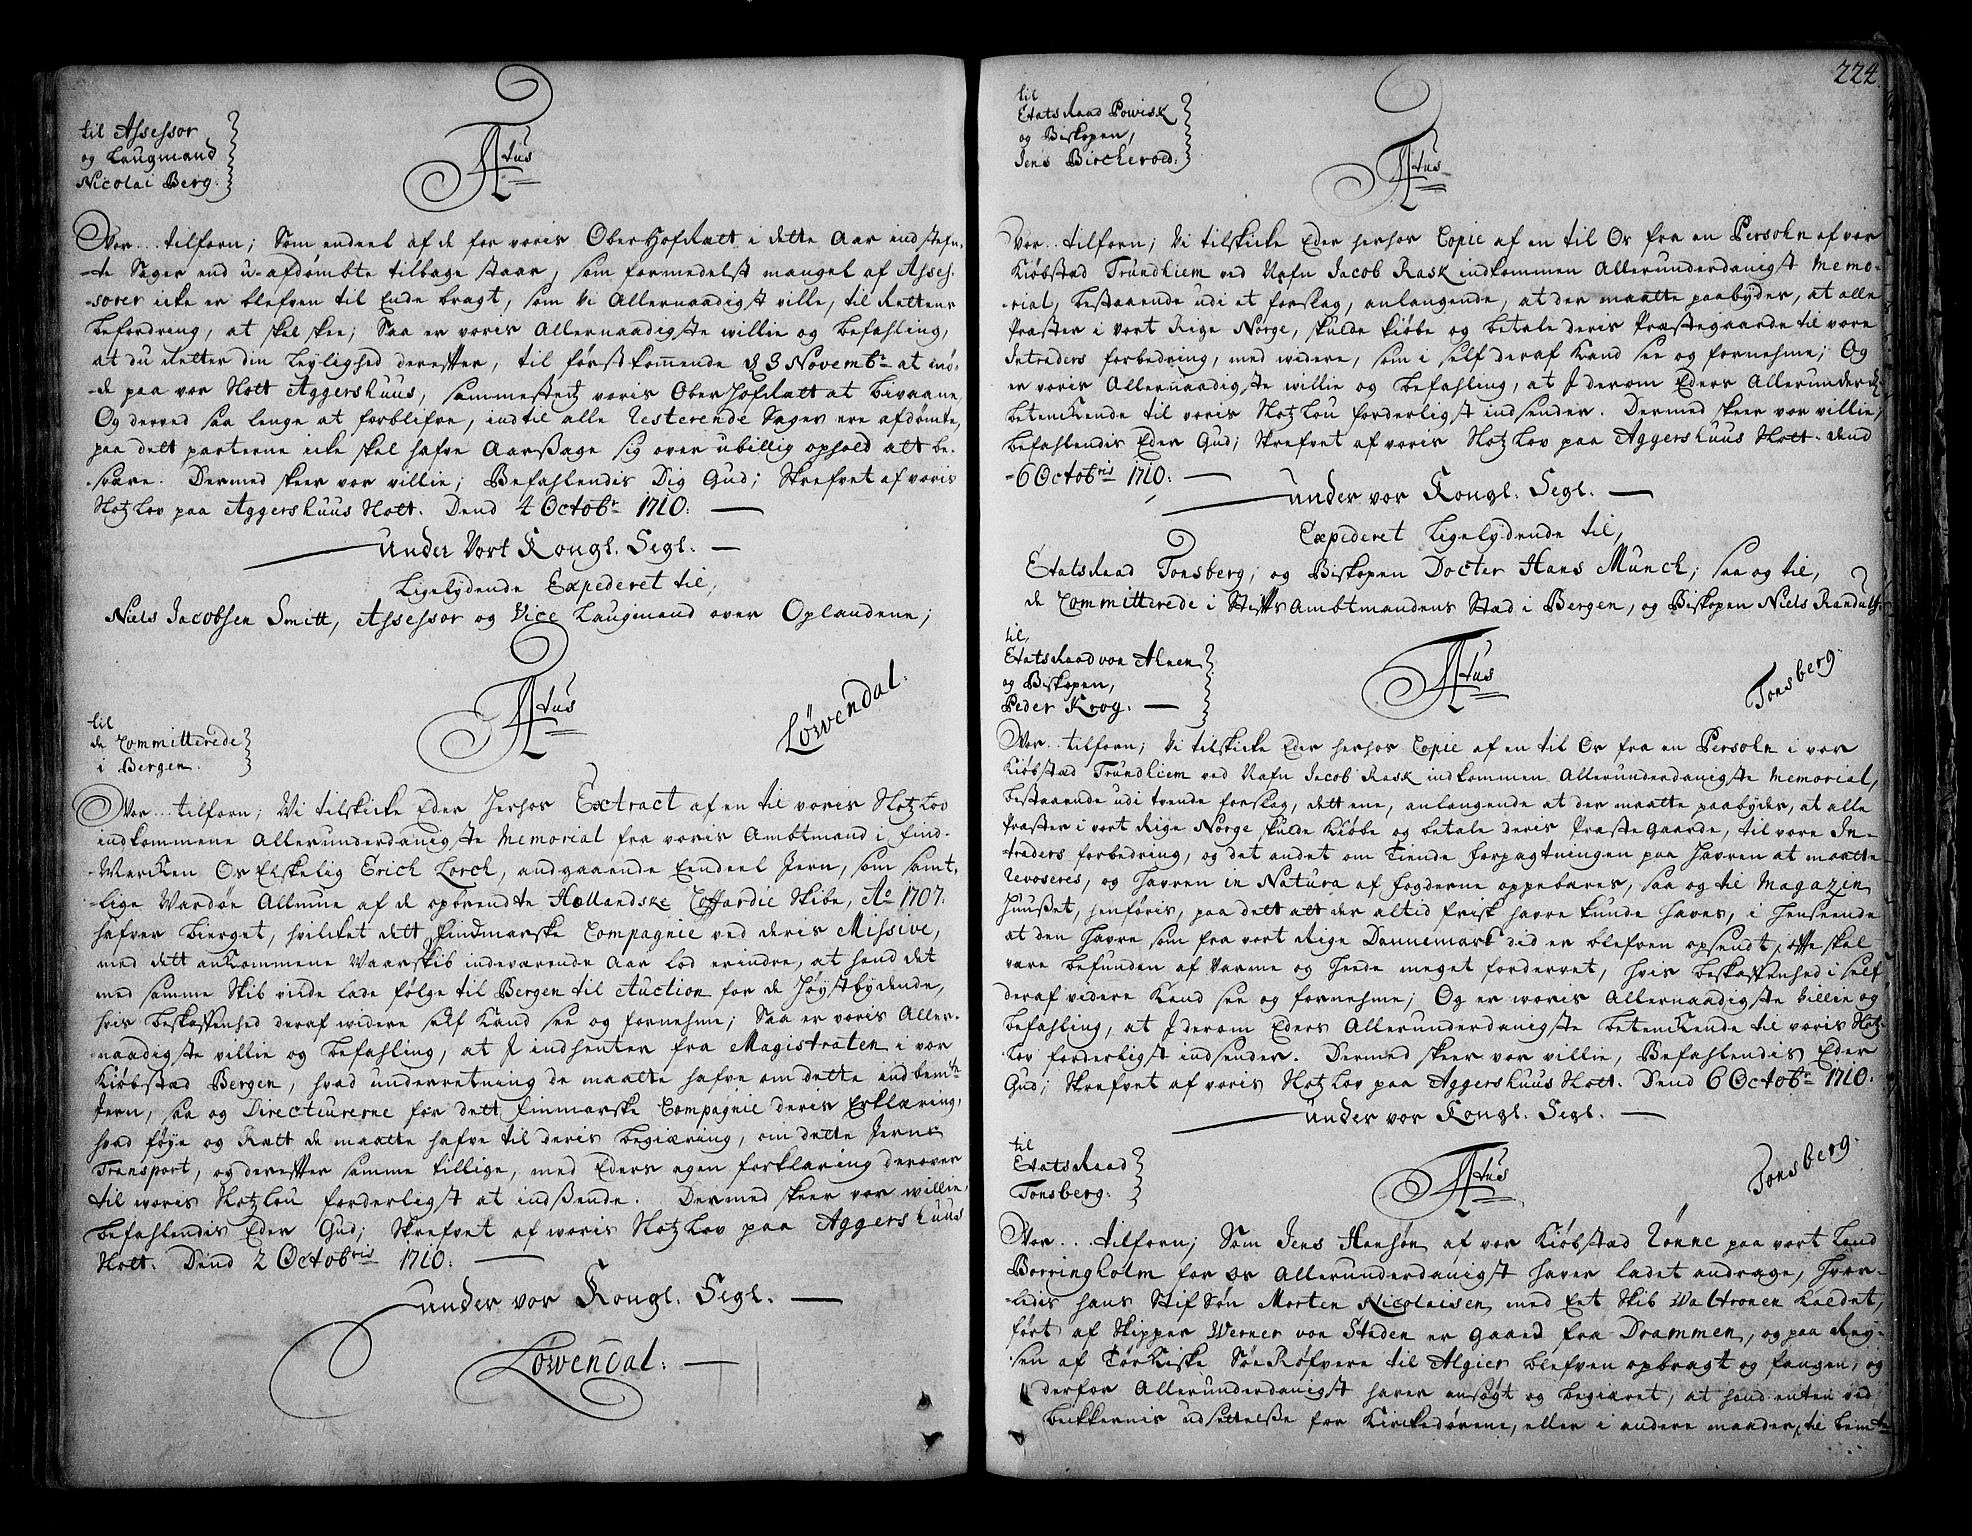 til Assessor
og Laugmand
Nicolai Berg.
Atus
Vor... tilforn; Som endeel af de for voris OberHofRætt i dette Aar indstefn-
-te Sager end u-afdømbte tilbage staar, som formedelst mangel af Asses-
-sorer icke er blefven til Ende bragt, som Vi Allernaadigst ville, til Rettens
befordring, at skal skee; Saa er voris Allernaadigste willie og befahling,
at du Retter din Leylighed derefter, til førstkommende d 3 Novembr at mø-
-de paa vor Slott Aggershuus, sammestedz voris OberHofRætt at bivaane,
Og derved saa lenge at forblifve, indtil alle Resterende Sager ere afdømte,
paa dett parterne icke skal hafve Aarsage sig over ubillig ophold att be-
-svære. Dermed skeer vor villie; Befahlendis Dig Gud; Skrefvet af voris
Slotz Lov paa Aggershuus Slott. Dend 4 Octobr 1710.
Under Vort Kongl. Segl.
Ligelydende Expederet til,
Niels Jacobsen Smitt, Assessor og Vice Laugmand over Oplandene;
Løwendal.
til
de Committerede
i Bergen.
Atus
Vor... tilforn; Vi tilskicke Eder herhos Extract af en til voris Slotz Lov
indkommene Allerunderdanigste Memorial fra voris Ambtmand i Find-
-Marcken Os Elskelig Erich Lorch, andgaaende Eendeel Jern, som samt-
-lige Wardøe Allmue af de opbrendte Hollandske Coffardie Skibe, Ao 1707.
hafver bierget, hvilcket dett Findmarske Compagnie ved deris Missive,
med dett ankommene Vaarskib indeværende Aar lod erindre, at hand det
med samme Skib vilde lade følge til Bergen til Auction for de Høystbydende,
hvis beskaffenhed deraf widere self Kand see og fornehme; Saa er voris Aller-
-naadigste villie og befahling, at I indhenter fra Magistraten i vor
Kiøbstad Bergen, hvad underretning de maatte hafve om dette andbemte
Jern, saa og Directeurerne for dett Finmarske Compagnie deris Erklæring,
hvad føye og Rætt de maatte hafve til deris begiæring, om dette Jerns
Transport, og derefter samme tillige, med Eders egen forklaring derover
til woris Slotz Lou forderligst at indsende. Dermed skeer vor willie,
befahlendis Eder Gud; Skrefvet af woris Slotz Lov paa Aggershuus
Slott. Dend 2 Octobris 1710.
under vor Kongl. Segl.
Løwendal.
224.
til
EtatsRaad Powisk
og Biskopen,
Jens Bircherod.
Atus
Vor... tilforn; Vi tilskicke Eder herhos Copie af en til Os fra en Persohn af vor
Kiøbstad Trundhiem ved Nafn Jacob Rask indkommen Allerunderdanigst Memo-
-rial, bestaaende udi et forslag, anlangende, at der maatte paabydes, at alle
Præster i vort Rige Norge, skulde kiøbe og betale deris Præstegaarde til vore
Intraders forbedring, med widere, som i self deraf Kand see og fornehme; Og
er voris Allernaadigste willie og befahling, at I derom Eders Allerunderd:
betenckende til voris Slotz Lou forderligst indsender. Dermed skeer vor villie;
befahlendis Eder Gud; Skrefvet af voris Slotz Lov paa Aggershuus Slott. dend
-6 Octobris 1710.
under vor Kongl. Segl.
Expederet Ligelydende til,
EtatsRaad Tonsberg; og Biskopen Docter Hans Munch; saa og til,
de Committerede i StiftsAmbtmandens Stæd i Bergen, og Biskopen Niels Randulf.
Tonsberg.
til,
EtatsRaad von Ahnen
og Biskopen,
Peder Krog.
Atus
Vor... tilforn; Vi tilskicke Eder herhos Copie af en til Os fra en Persohn i vor
Kiøbstæd Trundhiem ved Nafn Jacob Rask indkommen Allerunderdanigste Memorial,
bestaaende udi tvende forslag, dett ene, anlangende at der maatte paabydes, at alle
Præster i vort Rige Norge skulde Kiøbe og betale deris PræsteGaarde, til vore In-
-traders forbedring, og det andet om Tiende forpagtningen paa Havren at maatte
revoseres, og Havren in Natura af fogderne oppebæres, saa og til Magazin
Huuset, henføris, paa dett att der altid frisk havre kunde haves, i Henseende
at den Havre som fra vort Rige Dannemark did er blefven opsendt, ofte skal
være befunden af Varme og Heede meget forderfvet, hvis beskaffenhed i self
deraf videre Kand see og fornehme; Og er woris Allernaadigste Villie og
befahling, at I derom Eders Allerunderdanigste betenckende til voris Slotz-
Lov forderligst indsender. Dermed skeer vor villie, Befahlendis Eder
Gud; Skrefvet af voris Slotz Lov paa Aggershuus Slott. Dend 6 Octobr 1710.
under vor Kongl. Segl.
Tonsberg.
til
EtatsRaad
Tonsberg.
Atus
Vor... tilforn; Som Jens Hansøn af vor Kiøbstæd Rønne paa vort Land
Borringholm for os Allerunderdanigst haver ladet andrage, hvor-
-ledis hans StifSøn Morten Nicolaisen med Eet Skib Waltronen kaldet,
ført af Skipper Werner von Staden er gaaed fra Drammen, og paa Rey-
-sen af Tørkiske SøeRøfvere til Algier blefven opbragt og fangen, og
derfor Allerunderdanigst haver ansøgt og begiæret, at hand enten ved
beckkernis udsettelse for Kirckedørene, eller i andre maader, til bemte